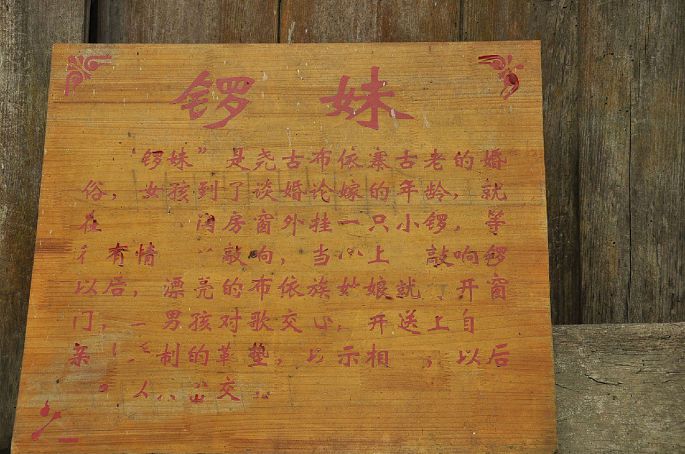 锣 妹
“锣妹”是尧古布依寨古老的婚
俗，女孩到了谈婚论嫁的年龄，就
在 房窗外挂一只小锣，等
有情 敲响，当 上 敲响锣
以后，漂亮的布依族姑娘就 开窗
门， 男孩对歌交心，并送上自
亲 制的革垫， 示相 ，以后
交